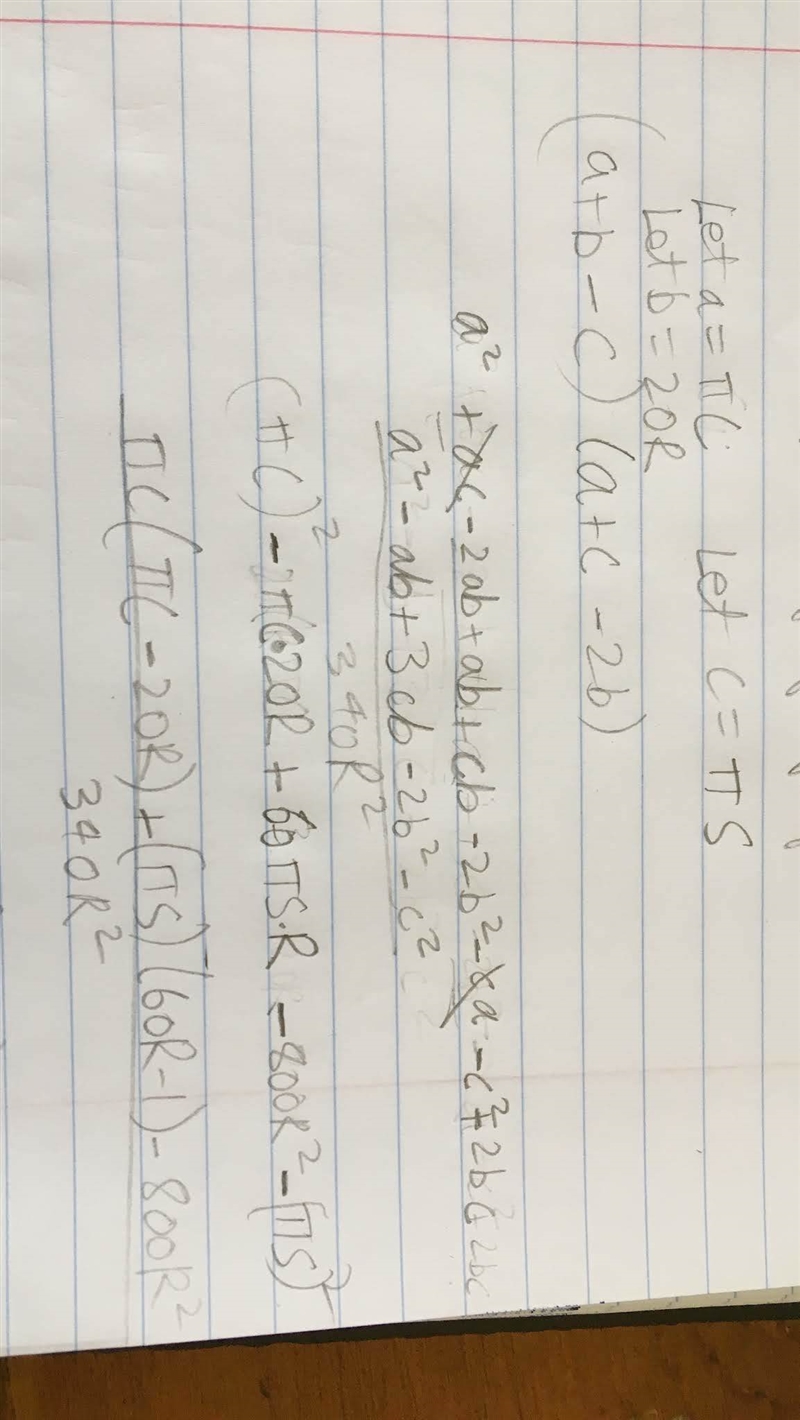 Let a = πC Let c = πS
Let b = 20R
(a+b-c)(a+c-2b)
a² + ac - 2ab + ab + cb - 2b² - ca - c² + 2bc 2bc
a² - ab + 3cb - 2b² - c²
340R²
(πC)² - πC·20R + 60πS·R - 800R² - (πS)²
πC(πC - 20R) + (πS)(60R-1) - 800R²
340R²